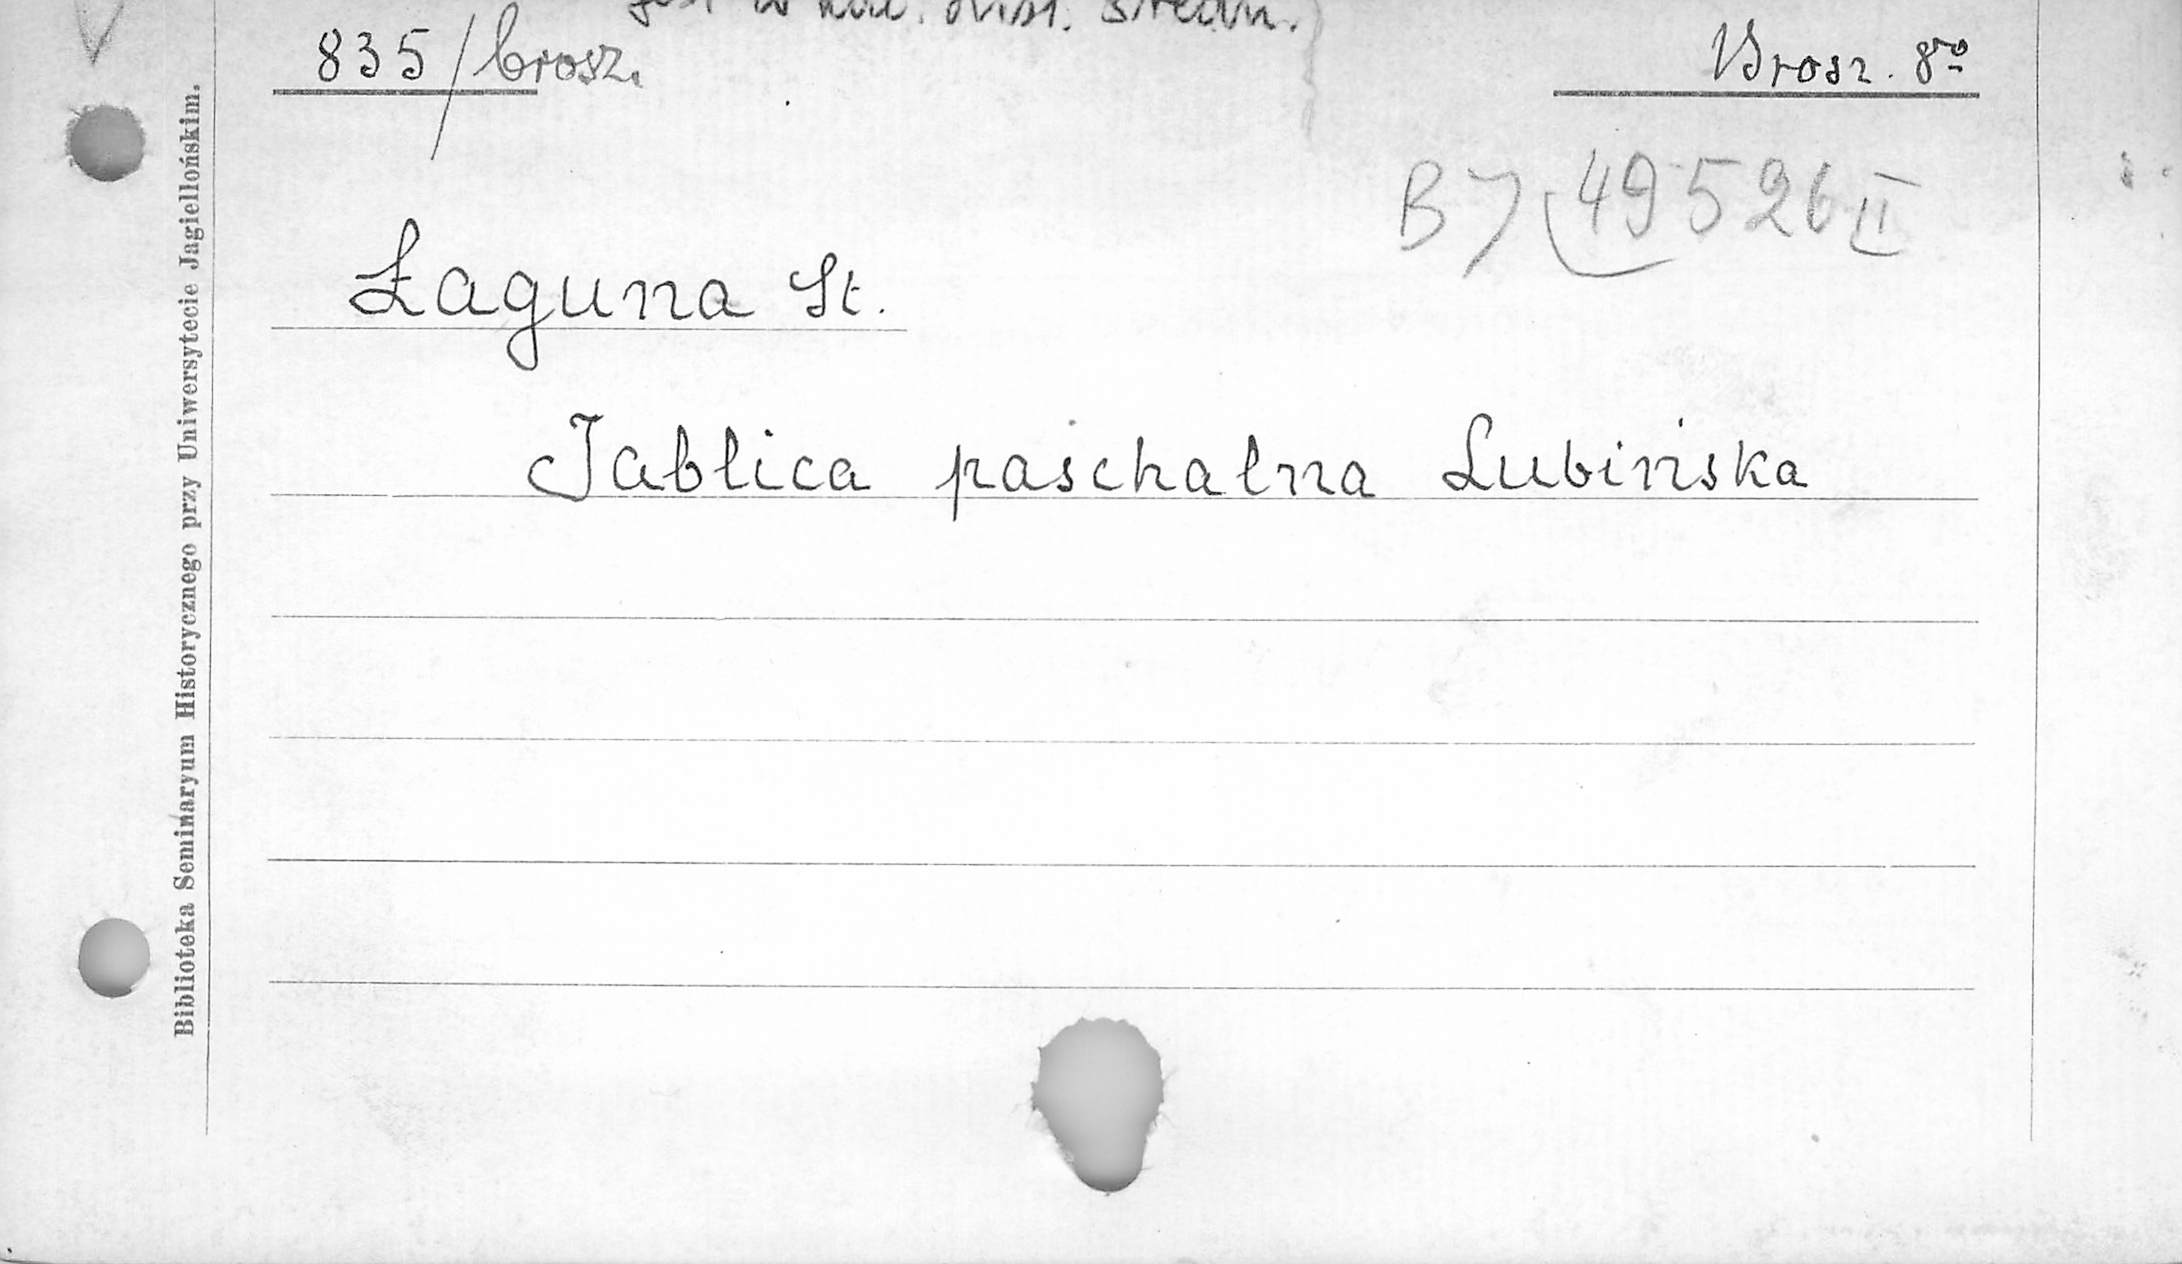 835/brosz.
Brosz. 8º
BJ 49526 II
Łaguna St.
Tablica paschalna Lubińska
Biblioteka Seminaryum Historycznego przy Uniwersytecie Jagiellońskim.